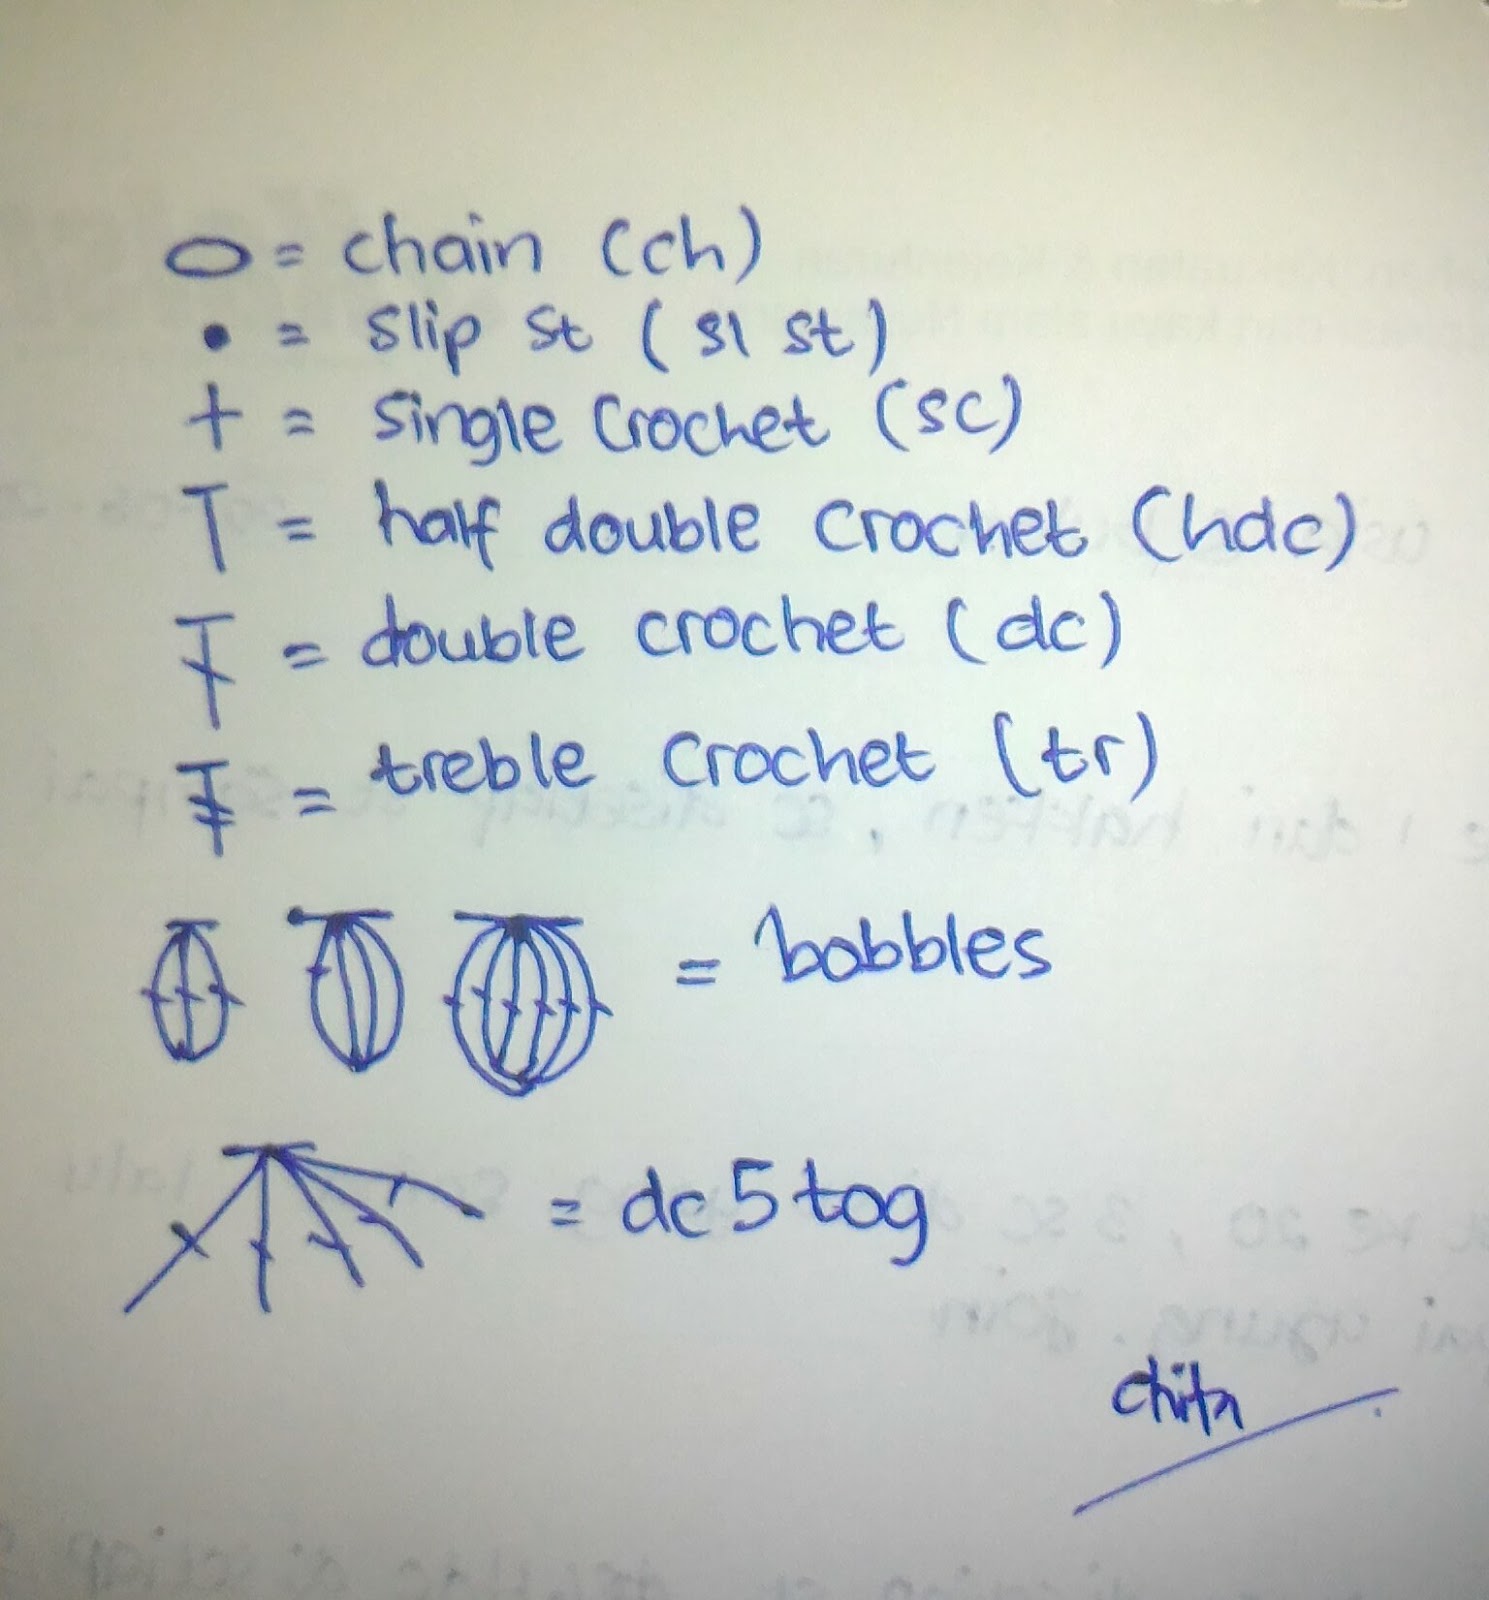 = chain (ch)
= slip st (sl st)
+ = single crochet (sc)
= half double crochet (hdc)
= double crochet (dc)
= treble crochet (tr)
= bobbles
= dc 5 tog
chita